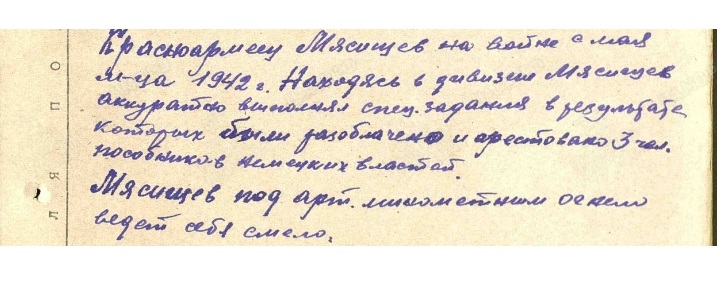 Красноармеец Мясищев на войне с мая
м-ца 1942 г. Находясь в дивизии Мясищев
аккуратно выполнял спец. задания в результате
которых были разоблачено и арестовано 3 чел.
пособников немецких властей.
Мясищев под арт. минометным огнем
ведет себя смело.
Л Я П О